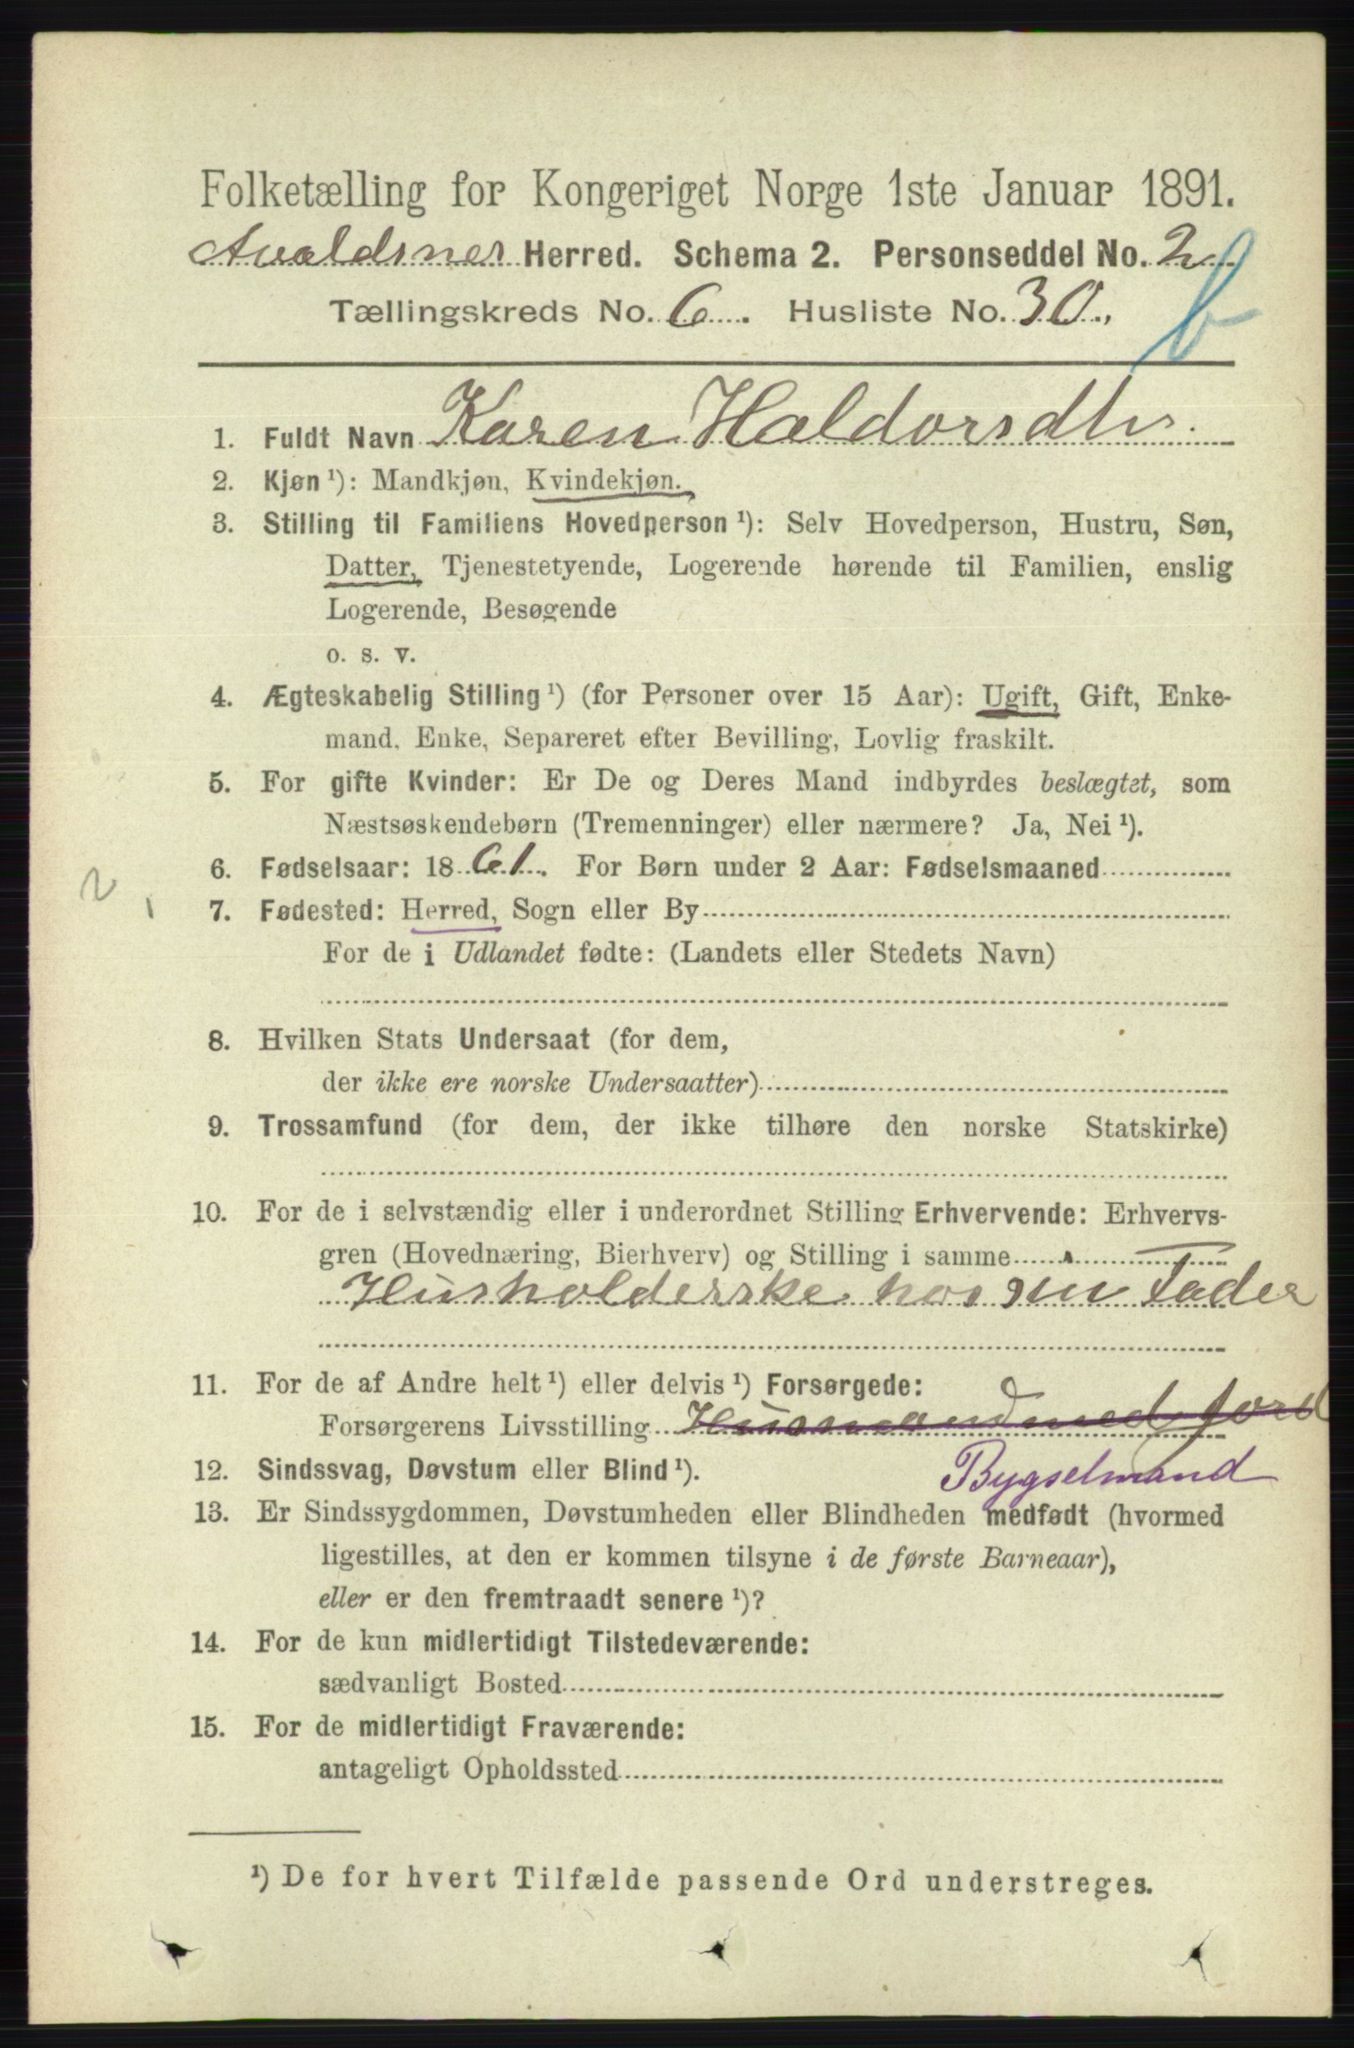 Folketælling for Kongeriget Norge 1ste Januar 1891.
Avaldsnes Herred. Schema 2. Personseddel No. 2
Tællingskreds No. 6. Husliste No. 30.
b
1. Fuldt Navn Karen Haldorsdtr.
2. Kjøn ¹): Mandkjøn, Kvindekjøn.
3. Stilling til Familiens Hovedperson ¹): Selv Hovedperson, Hustru, Søn,
Datter, Tjenestetyende, Logerende hørende til Familien, enslig
Logerende, Besøgende
o. s. v.
4. Ægteskabelig Stilling ¹) (for Personer over 15 Aar): Ugift, Gift, Enke-
mand, Enke, Separeret efter Bevilling, Lovlig fraskilt.
5. For gifte Kvinder: Er De og Deres Mand indbyrdes beslægtet, som
Næstsøskendebørn (Tremenninger) eller nærmere? Ja, Nei ¹).
6. Fødselsaar: 1861. For Børn under 2 Aar: Fødselsmaaned
2
7. Fødested: Herred, Sogn eller By
For de i Udlandet fødte: (Landets eller Stedets Navn)
8. Hvilken Stats Undersaat (for dem,
der ikke ere norske Undersaatter)
9. Trossamfund (for dem, der ikke tilhøre den norske Statskirke)
10. For de i selvstændig eller i underordnet Stilling Erhvervende: Erhvervs-
gren (Hovednæring, Bierhverv) og Stilling i samme
Husholderske hos sin Fader
11. For de af Andre helt ¹) eller delvis ¹) Forsørgede:
Forsørgerens Livsstilling Husmand med Jord
Bygselmand
12. Sindssvag, Døvstum eller Blind ¹).
13. Er Sindssygdommen, Døvstumheden eller Blindheden medfødt (hvormed
ligestilles, at den er kommen tilsyne i de første Barneaar),
eller er den fremtraadt senere ¹)?
14. For de kun midlertidigt Tilstedeværende:
sædvanligt Bosted
15. For de midlertidigt Fraværende:
antageligt Opholdssted
¹) De for hvert Tilfælde passende Ord understreges.